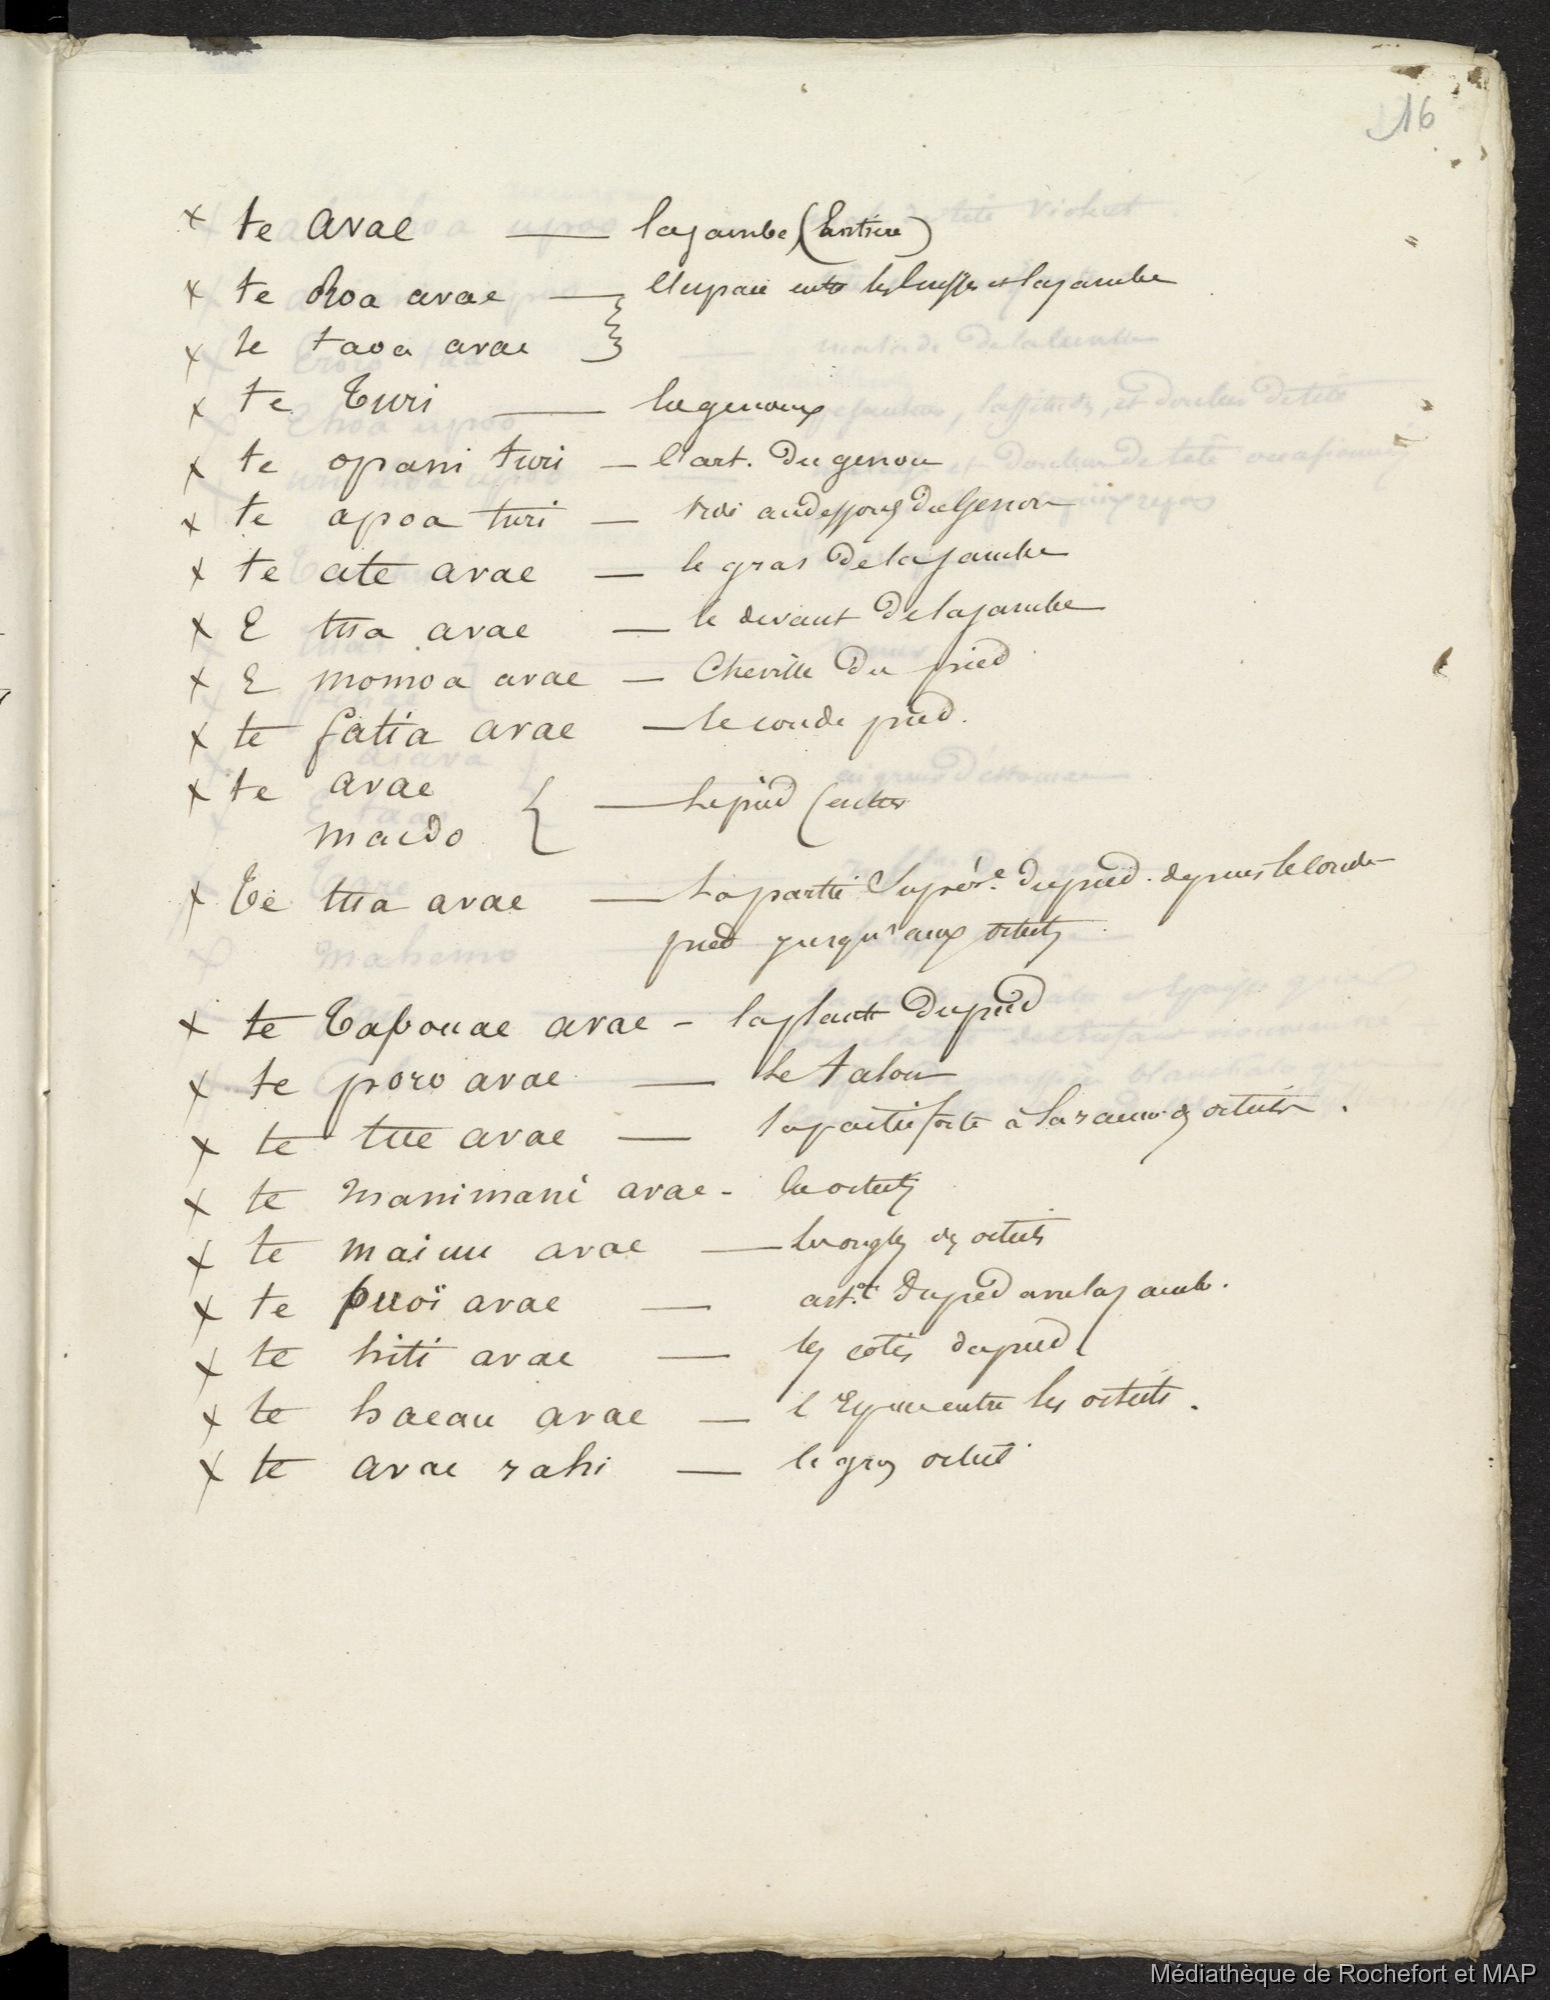 16
× te avae — la jambe (Entiere)
× te hoa avae — l'espace entre les cuisses et la jambe
× te taoa avae
× te Turi — les genoux
× te opani turi — l'art. du genou
× te apoa turi — au dessous du Genou
× te ate avae — le gras de la jambe
× E tua avae — le devant de la jambe
× E momoa avae — Cheville du pied
× te fatia avae — le coude pied.
× te avae — Le pied (entier
maido
× Te tua avae — La partie Supér.e du pied. depuis le coude
pied jusqu'aux orteils
× te Tapouae avae – la plante du pied
× te poro avae — Le talon
× te tue avae — la partie forte à la racine des orteils.
× te manimani avae – les orteils
× te maiuu avae — les ongles des orteils
× te puoï avae — art.t du pied avec la jambe.
× te hiti avae — les cotés du pied
× te haeau avae — l'Espace entre les orteils.
× te avae rahi — le gros orteil
Médiathèque de Rochefort et MAP